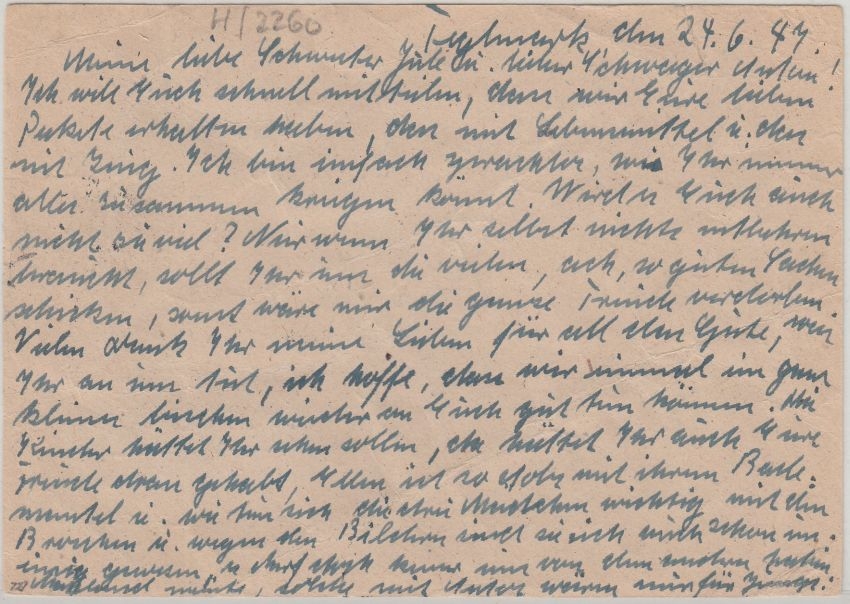 H/2260
den 24. 6. 47.
Meine liebe Schwester Jule u. lieber Schwager Anton!
Ich will Euch schnell mitteilen, dass wir Eure lieben
Pakete erhalten haben, den mit Lebensmittel u. den
mit Zeug. Ich bin einfach sprachlos, wie Ihr immer
alles zusammen kriegen könnt. Wird es Euch auch
nicht zu viel? Nur wenn Ihr selbst nichts entbehren
braucht, sollt Ihr uns die vielen, ach, so guten Sachen
schicken, sonst wäre mir die ganze Freude verdorben.
Vielen Dank Ihr meine Lieben für all den Gute, was
Ihr an uns tut, ich hoffe, dass wir einmal im ganz
kleinen bischen wieder an Euch gut tun können. Die
Kinder hättet Ihr sehen sollen, da hättet Ihr auch Eure
Freude dran gehabt, Ellen ist so stolz mit ihrem Bade-
mantel u. wie tun sich die drei Mädchen wichtig mit den
Broschen u. wegen den Bildchen sind sie sich auch schon un-
einig gewesen u. darf doch keiner was von dem andern
, solche mit Autos wären nur für Jungs!